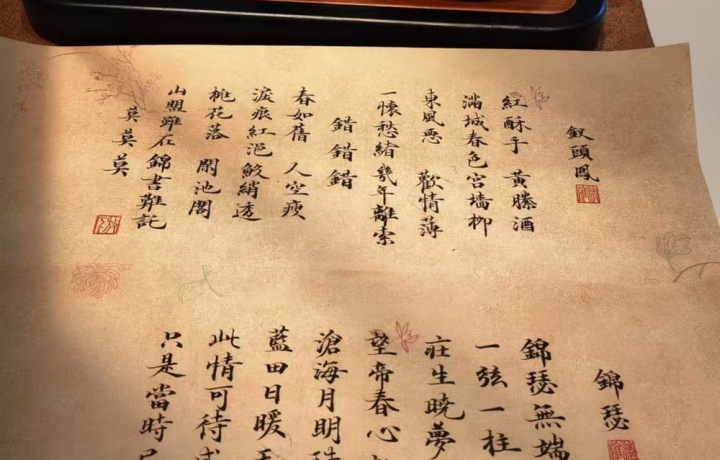 釵頭鳳
紅酥手 黃縢酒
滿城春色宮墻柳
東風惡 歡情薄
一懷愁緒幾年離索
錯錯錯
春如舊 人空瘦
淚痕紅浥鮫綃透
桃花落 閑池閣
山盟雖在錦書難託
莫莫莫
錦瑟
錦瑟無端
一弦一柱
莊生曉夢
望帝春心
滄海月明珠
藍田日暖
此情可待
只是當時